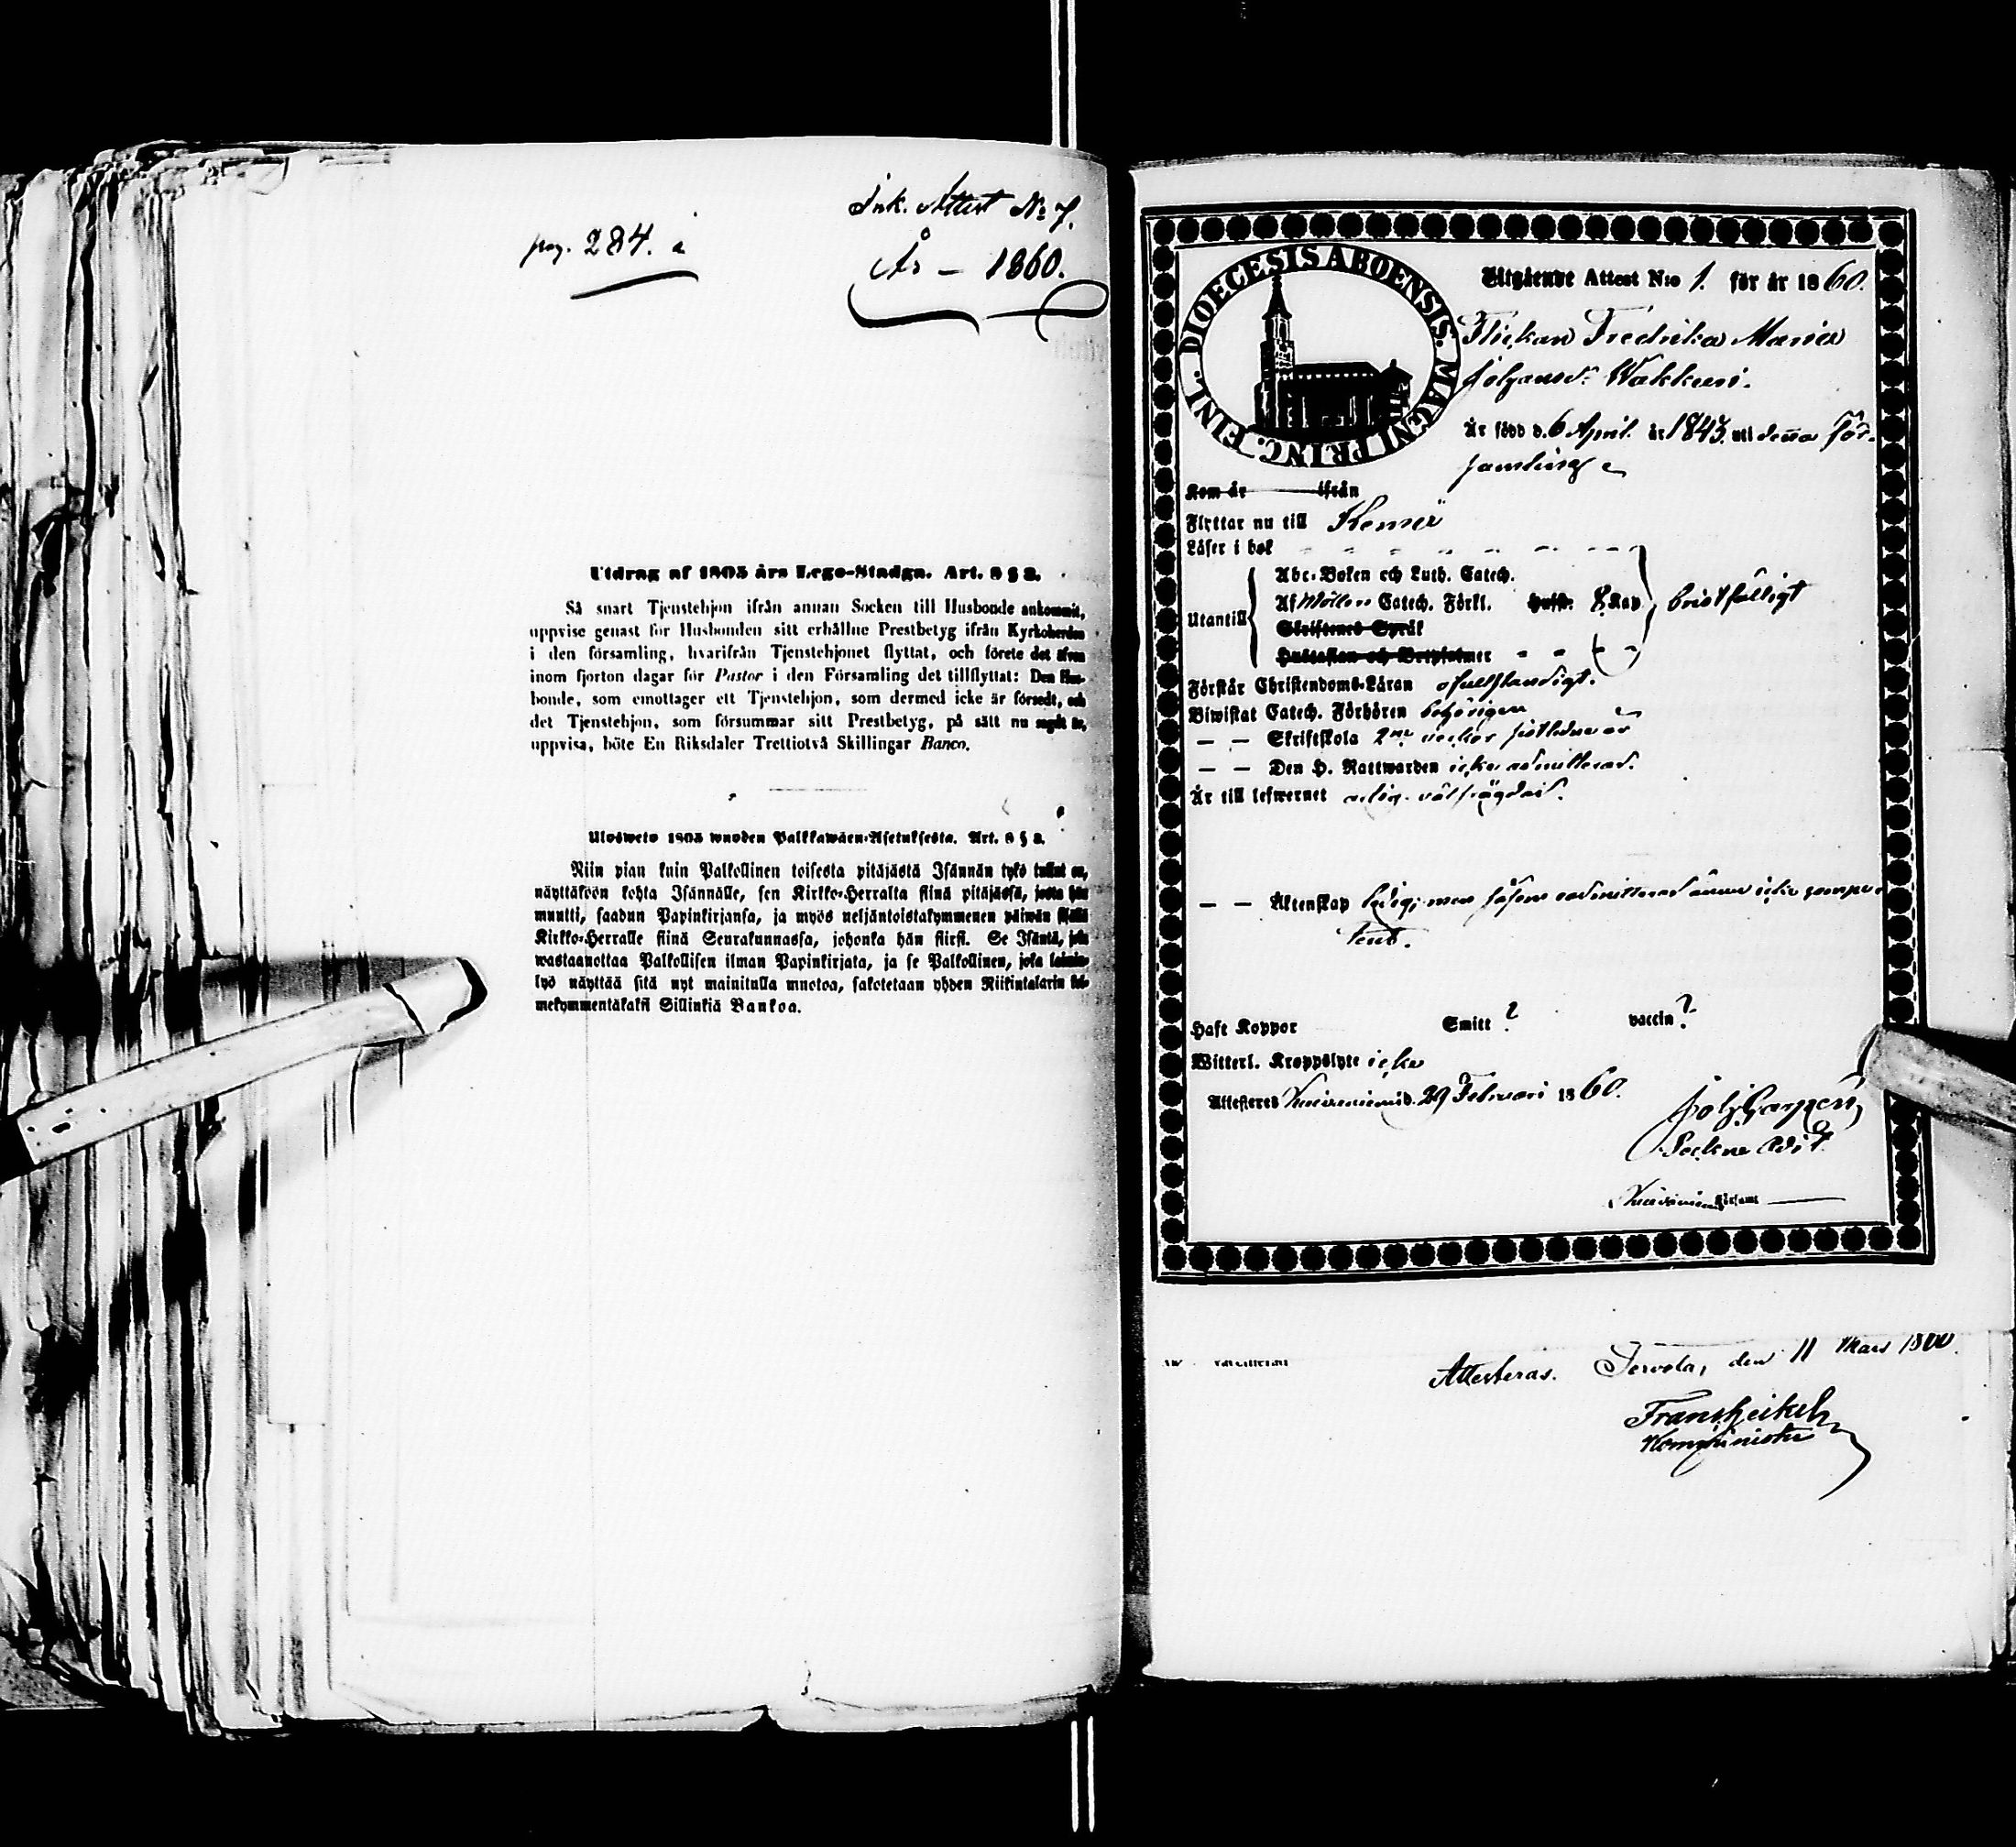 Ink. Attest No 7.
pag. 284.
År - 1860.
Utdrag af 1805 års Lego-Stadga. Art. 8 § 2.
Så snart Tjenstehjon ifrån annan Socken till Husbonde ankommit,
uppvise genast för Husbonden sitt erhållne Prestbetyg ifrån Kyrkoherden
i den församling, hvarifrån Tjenstehjonet flyttat, och förete det äfven
inom fjorton dagar för Pastor i den Församling det tillflyttat: Den Hus-
bonde, som emottager ett Tjenstehjon, som dermed icke är försedt, och
det Tjenstehjon, som försummar sitt Prestbetyg, på sätt nu sagdt är,
uppvisa, böte En Riksdaler Trettiotvå Skillingar Banco.
Ulosweto 1805 wuoden Palkkawäen-Asetuksesta. Art. 8 § 2.
Niin pian kuin Palkollinen toisesta pitäjästä Isännän tykö tullut on,
näyttäköön kohta Isännälle, sen Kirkko-Herralta siinä pitäjässä, josta hän
muutti, saadun Papinkirjansa, ja myös neljäntoistakymmenen päiwän sisällä
Kirkko-Herralle siinä Seurakunnassa, johonka hän siirsi. Se Isäntä, joka
wastaanottaa Palkollisen ilman Papinkirjata, ja se Palkollinen, joka laimin-
lyö näyttää sitä nyt mainitulla muotoa, sakotetaan yhden Riikintalarin kol-
mekymmentäkaksi Sillinkiä Bankoa.
DIOECESIS ABOENSIS. MAGNI PRINC. FINL.
Utgående Attest N:o 1. för år 1860.
Flickan Fredrika Maria
Johansd:r Wakkuri.
Är född d. 6 April. år 1843. uti denna för-
samling
Kom år ifrån
Flyttar nu till Kemi
Läser i bok
Abc-Boken och Luth. Catech.
Utantill Af Catech. Förkl. Hufst. 8 Kap bristfälligt
Skriftenes Språk
Hustaflan och Botpsalmer
Förstår Christendoms-Läran ofullständigt.
Biwistat Catech. Förhören behörigen
— — Skriftskola 2ne veckor sistledne år
— — Den H. Nattwarden icke admitterad.
Är till lefwernet välfrägdad.
— — Äktenskap ledig; men såsom oadmitterad ännu icke compe-
tent.
Haft Koppor Smitt ? vaccin ?
Witterl. Kroppslyte icke
Attesteras d. 29 Februari 1860.
Joh.
Sockne Adj:t
Församl
Attesteras. Tervola, den 11 Mars 1860.
Frans Heikel
Komminister